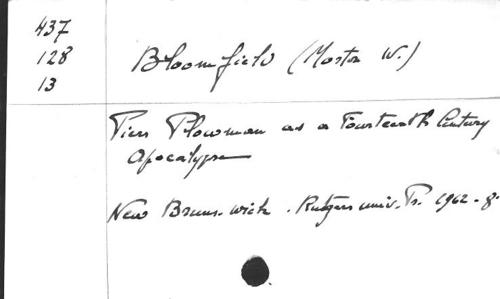 437
128
13
Bloomfield (Morton W.)
Piers Plowman as a Fourteenth Century
Apocalypse
New Brunswick. Rutgers univ. Pr. 1962. 8.